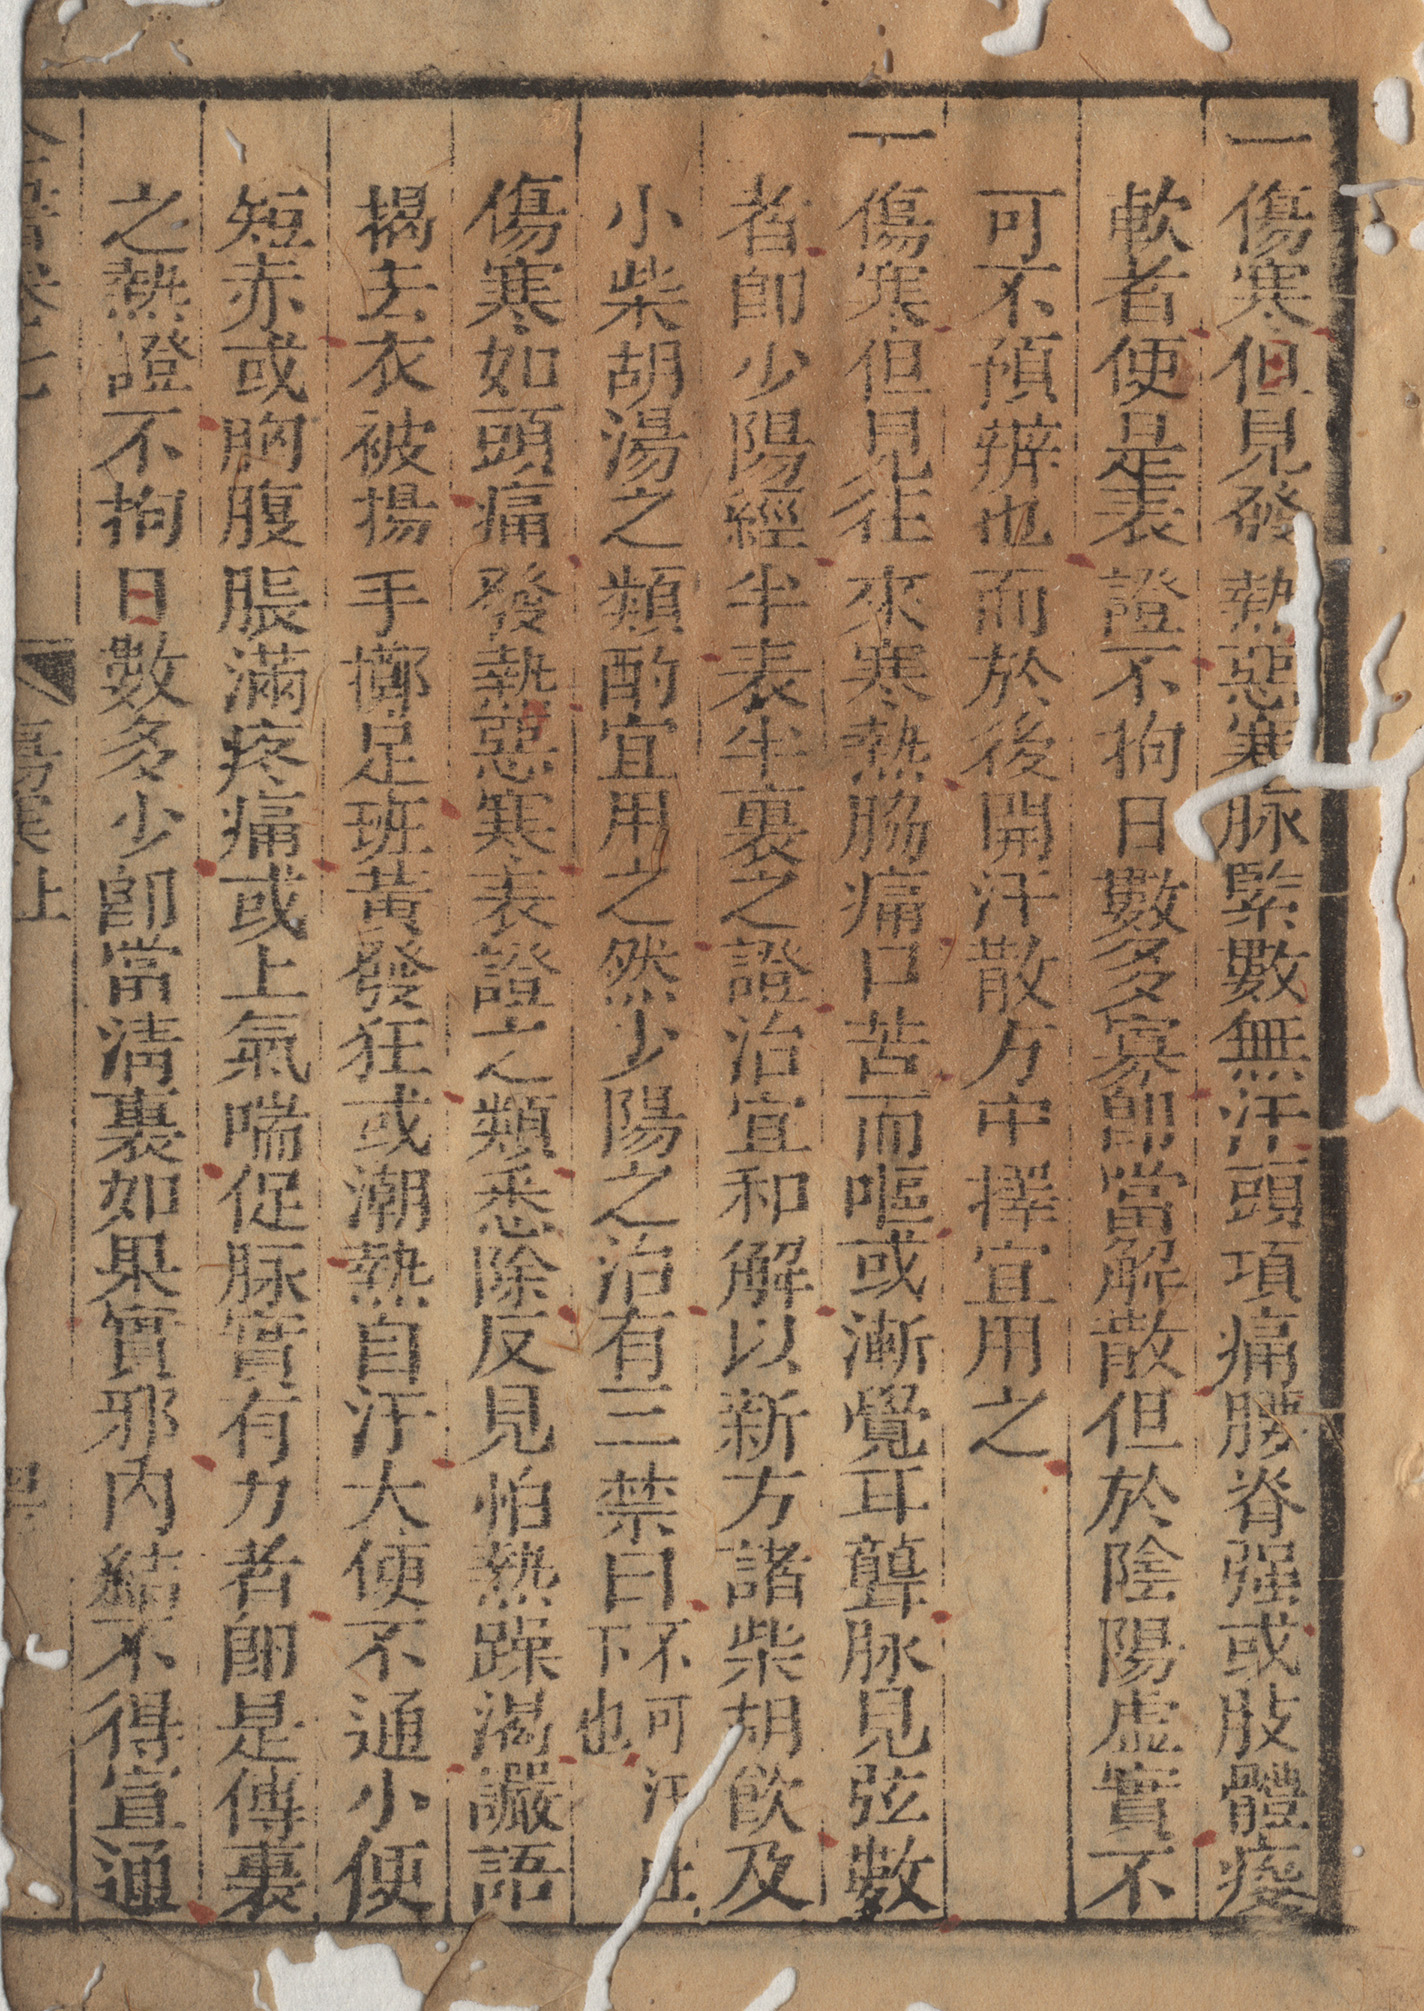 一傷寒但見發熱惡寒脉緊數無汗頭項痛腰脊强或肢體痠
軟者便是表證不拘日數多寡卽當解散但於陰陽虚實不
可不預辨也而於後開汗散方中擇宜用之
一傷寒但見徃來寒熱脇痛口苦而嘔或漸覺耳聾脉見弦數
者卽少陽經半表半裏之證治宜和解以新方諸柴胡飮及
小柴胡湯之類酌宜用之然少陽之治有三禁曰不可汗吐下也
傷寒如頭痛發熱惡寒表證之類悉除反見怕熱躁渴讝語
揭去衣被揚手擲足班黃發狂或潮熱自汗大便不通小便
短赤或胸腹脹滿疼痛或上氣喘促脉實有力者卽是傳裏
之熱證不拘日數多少卽當清裏如果實邪内結不得宣通
傷寒上